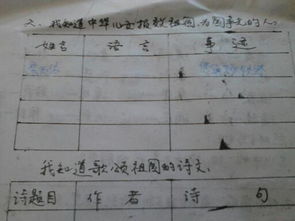 二、我知道中华儿女报效祖国,为国争光的人。
姓名 语言 事迹
我知道歌颂祖国的诗文。
诗题目 作者 诗句